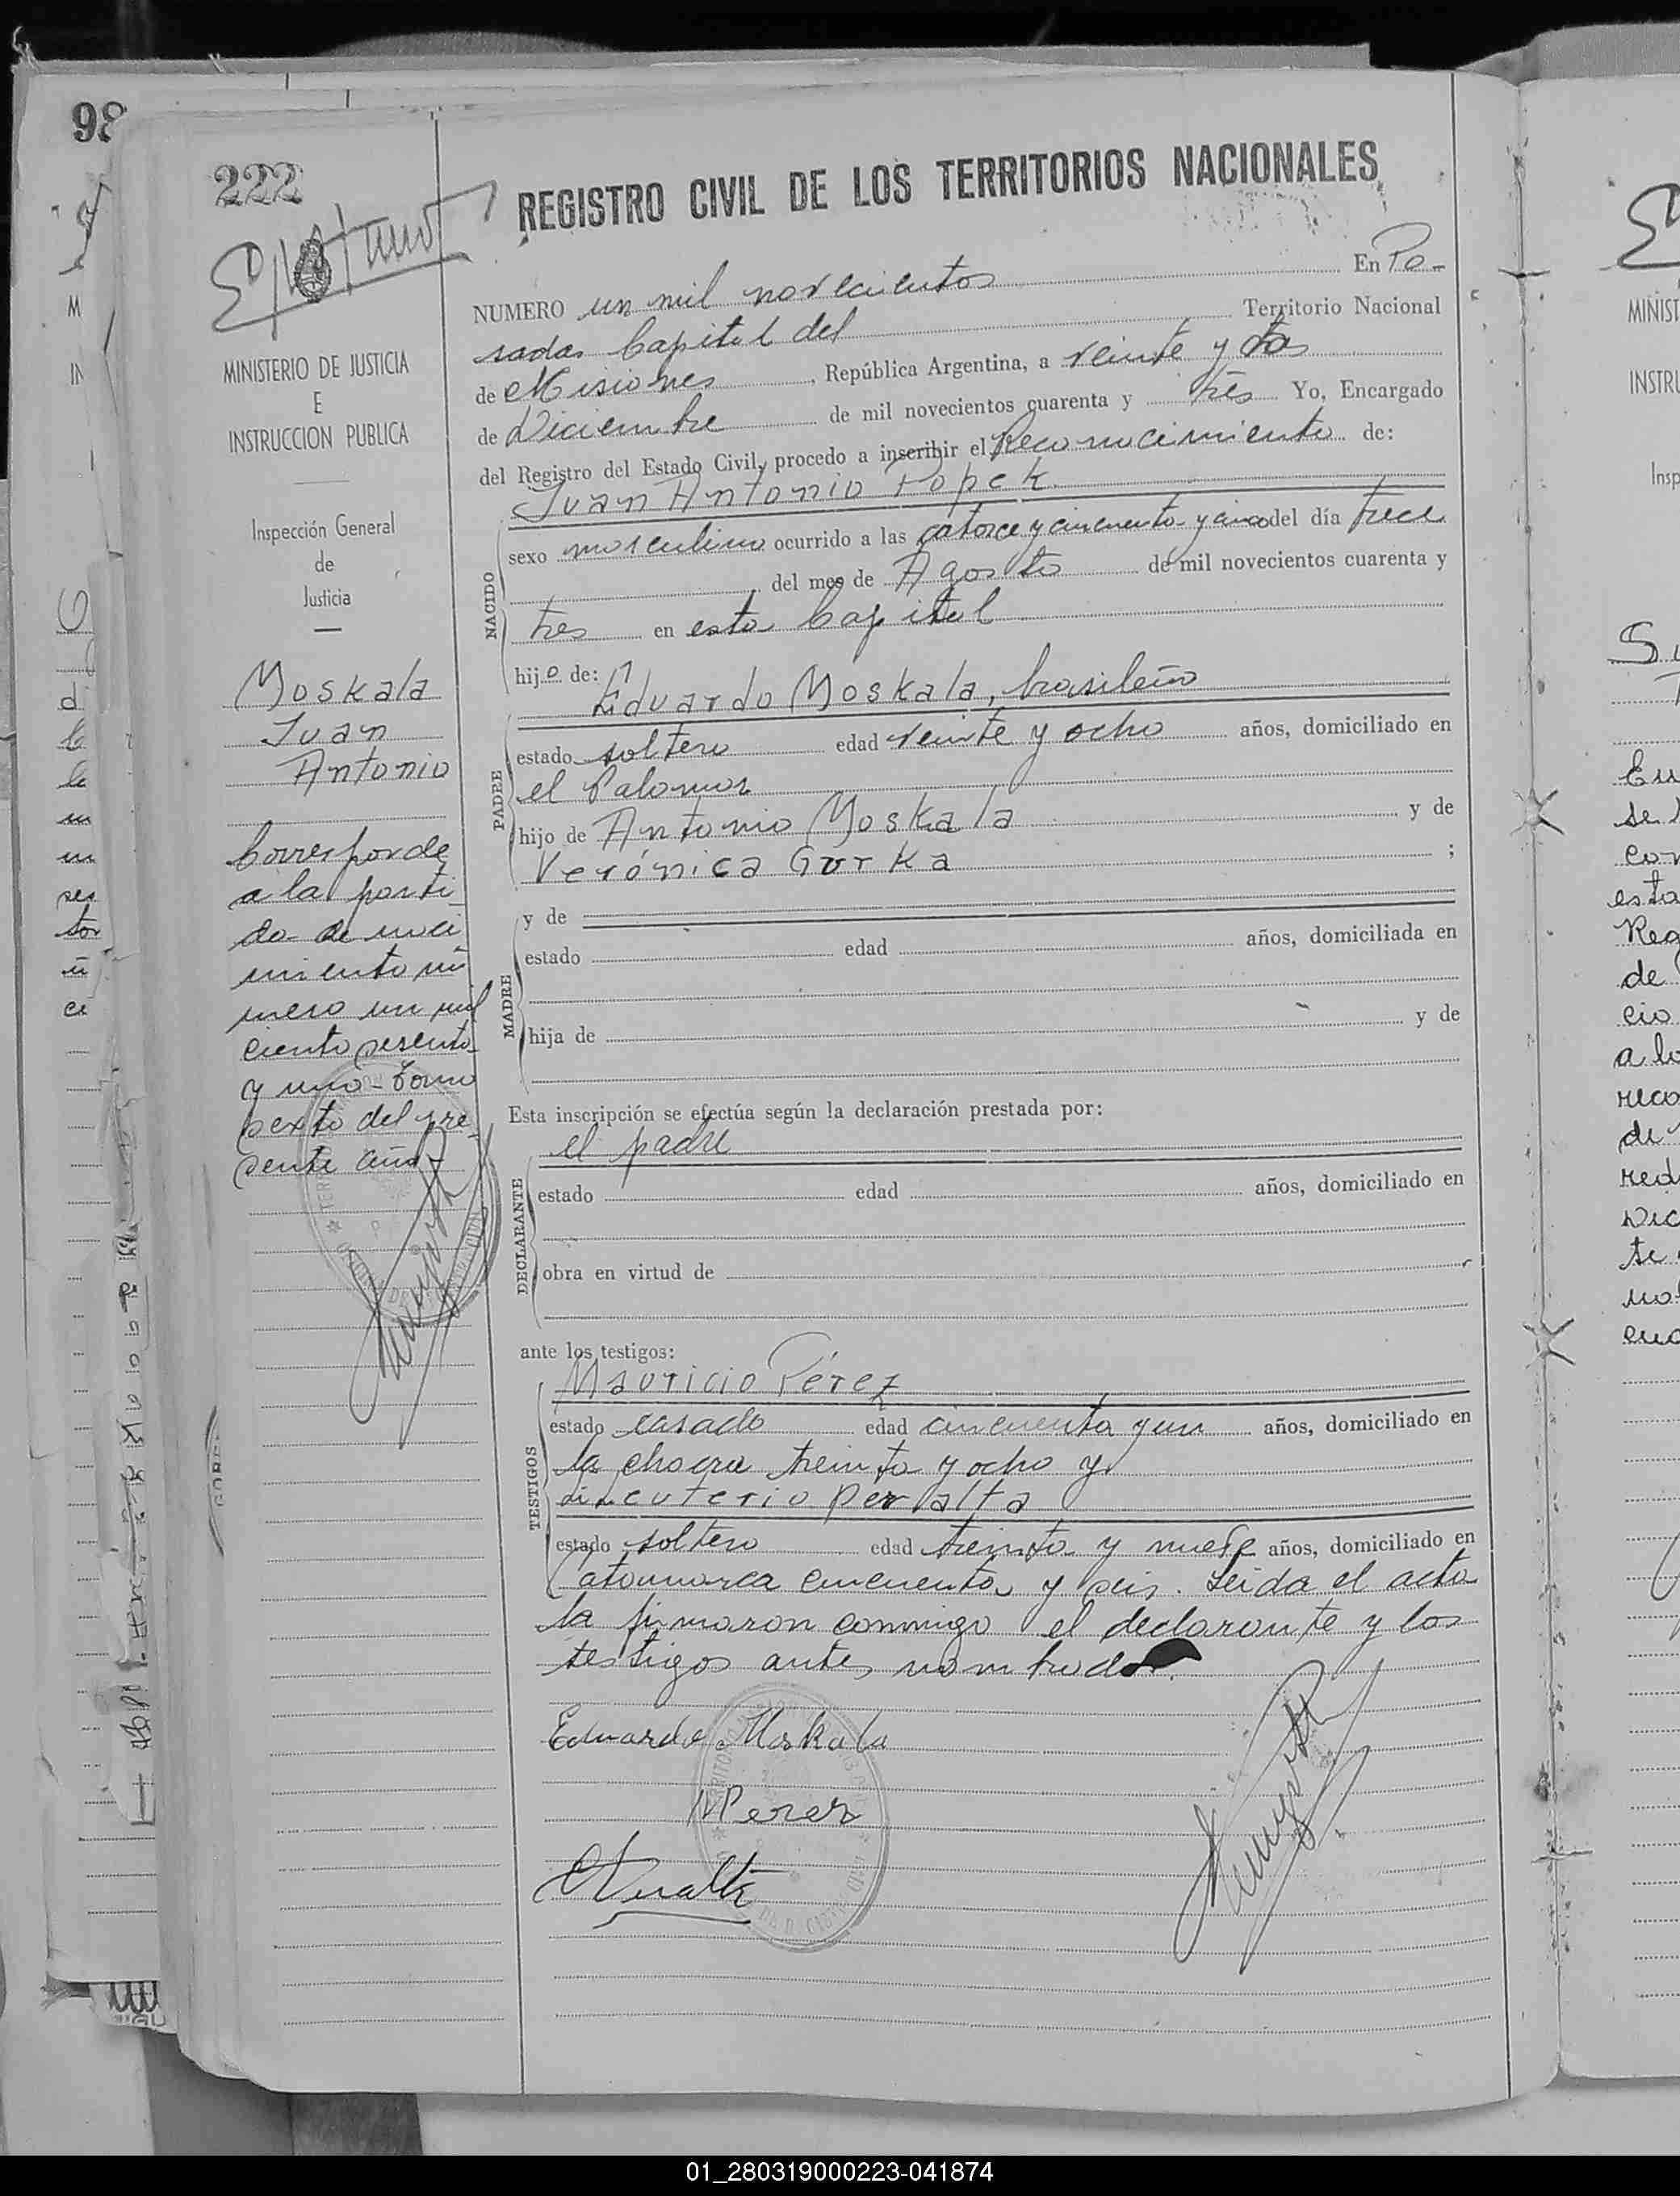 98
222
REGISTRO CIVIL DE LOS TERRITORIOS NACIONALES
NUMERO un mil novecientos En Po-
sadas Capital del Territorio Nacional
de Misiones, República Argentina, a veinte y dos
de Diciembre de mil novecientos cuarenta y tres Yo, Encargado
del Registro del Estado Civil, procedo a inscribir el Reconocimiento de:
Juan Antonio Popek
NACIDO
sexo masculino ocurrido a las catorce y cincuenta y cinco del día trece
del mes de Agosto de mil novecientos cuarenta y
tres en esta Capital
hijo de:
PADRE
Eduardo Moskala, brasileño
estado soltero edad veinte y ocho años, domiciliado en
el Palomar
hijo de Antonio Moskala y de
Verónica Gurka ;
MADRE
y de
estado edad años, domiciliada en
hija de y de
Esta inscripción se efectúa según la declaración prestada por:
DECLARANTE
el padre
estado edad años, domiciliado en
obra en virtud de
ante los testigos:
TESTIGOS
Mauricio Pérez
estado casado edad cincuenta y un años, domiciliado en
la chacra treinta y ocho y
Eleuterio Peralta
estado soltero edad treinta y nueve años, domiciliado en
Catamarca cincuenta y seis. Leida el acta
la firmaron conmigo el declarante y los
testigos antes nombrados.
Eduardo Moskala
M Perez
EPeralta
MINISTERIO DE JUSTICIA
E
INSTRUCCION PUBLICA
Inspección General
de
Justicia
Moskala
Juan
Antonio
Corresponde
a la parti
da de naci
miento nú
mero un mil
ciento sesenta
y uno - Tomo
sexto del pre
sente año-
01_280319000223-041874